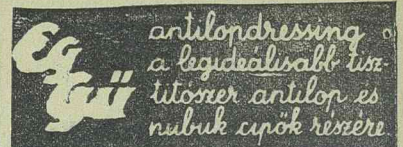 Eg
Gü
antilopdressing
a legideálisabb tisz-
titószer antilop és
nubuk cipők részére